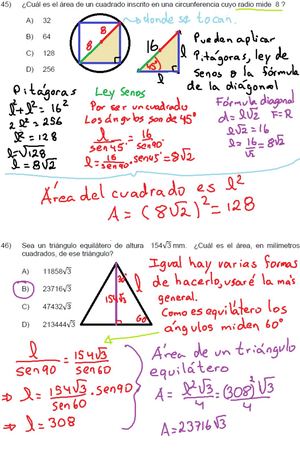 45) ¿Cuál es el área de un cuadrado inscrito en una circunferencia cuyo radio mide 8 ?
A) 32
B) 64
C) 128
D) 256
donde se tocan.
8
8
16
45°
Pueden aplicar
Pitágoras, ley de
senos o la fórmula
de la diagonal
Pitágoras
l²+l²=16²
2l²=256
l²=128
l=√128
l=8√2
Ley Senos
Por ser un cuadrado
los ángulos son de 45°
l/sen45 = 16/sen90
l = 16/sen90 · sen45 = 8√2
Fórmula diagonal
d=l√2 F=R
l√2=16
l=16/√2
l=8√2
Área del cuadrado es l²
A = (8√2)² = 128
46) Sea un triángulo equilátero de altura 154√3 mm. ¿Cuál es el área, en milímetros
cuadrados, de ese triángulo?
A) 11858√3
B) 23716√3
C) 47432√3
D) 213444√3
30°
154√3
l
60°
Igual hay varias formas
de hacerlo, usaré la más
general.
Como es equilátero los
ángulos miden 60°
l/sen90 = 154√3/sen60
⇒ l = 154√3/sen60 · sen90
⇒ l = 308
Área de un triángulo
equilátero
A = l²√3/4 = (308)²√3/4
A=23716√3